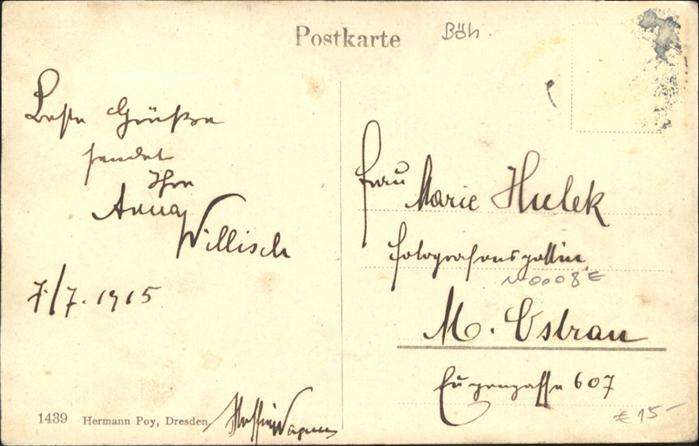 Postkarte
Böh.
Beste Grüße
sendet
Ihre
Anna
Willisch
7/7. 1915
Frau
Marie Hulek
Fotografensgattin
M. Ostrau
Eugengasse 607
€ 15-
1439 Hermann Poy, Dresden